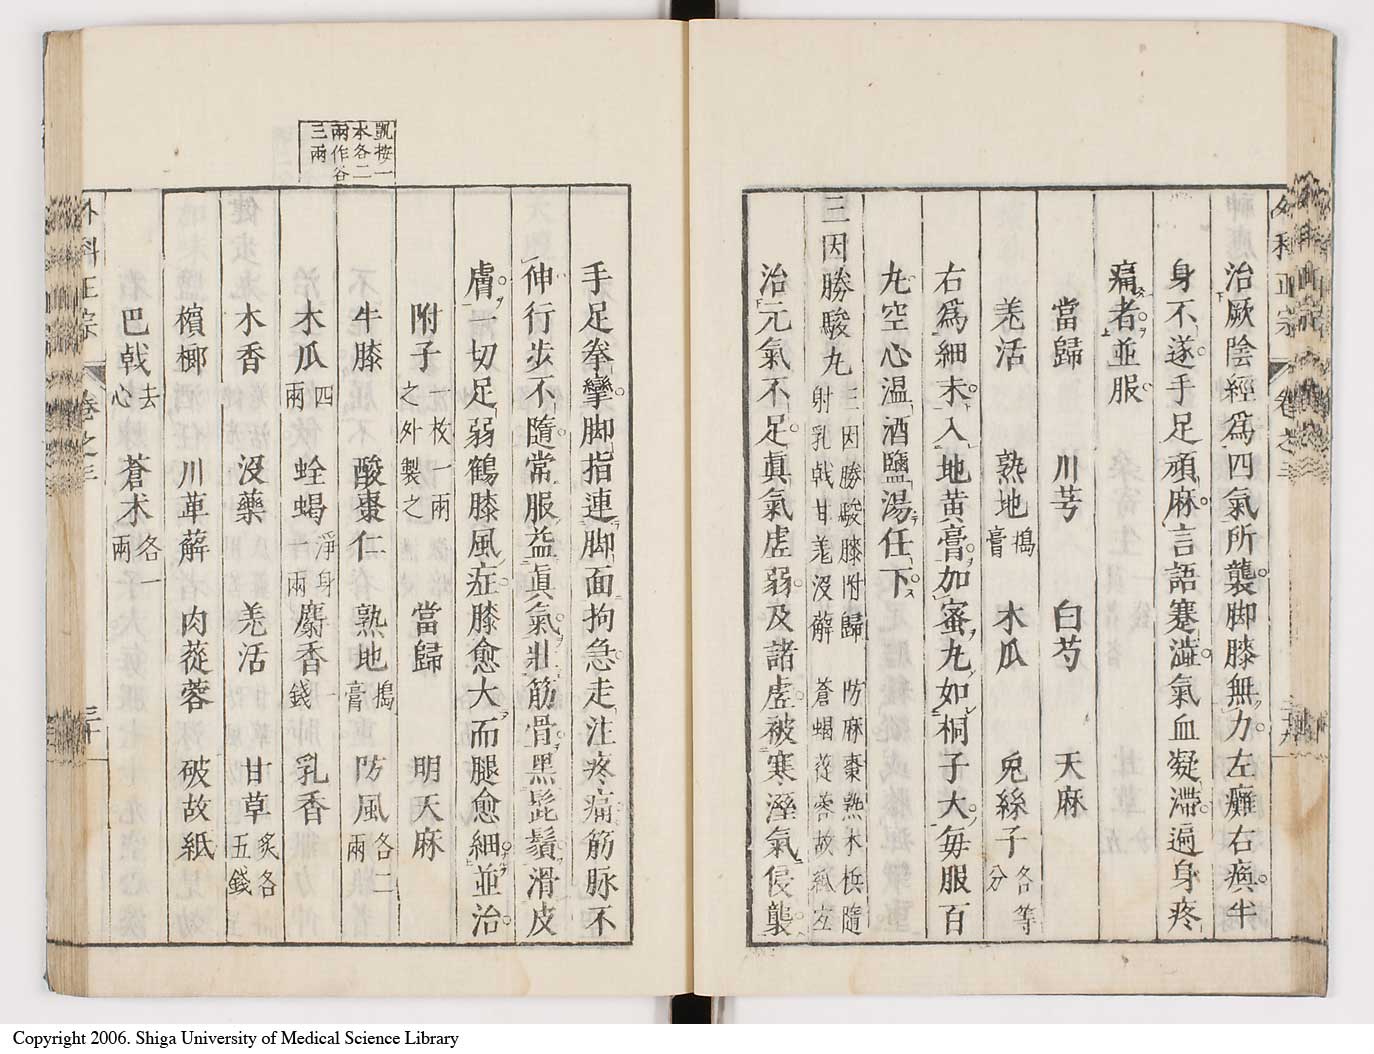 治厥陰經爲四氣所襲脚膝無力左癱右瘓半
身不遂手足頑麻言語蹇澁氣血凝滯遍身疼
痛者並服
當歸 川芎 白芍 天麻
羌活 熟地搗膏 木瓜 兎絲子各等分
右爲細末入地黃膏加蜜丸如桐子大毎服百
丸空心温酒鹽湯任下
三因勝駿丸 三因勝駿膝附歸 防麻棗熟木梹隨
射乳戟甘羗沒薢 蒼蝎蓯蓉故紙左
治元氣不足眞氣虚弱及諸虚被寒溼氣侵襲
外科正宗 卷之三
手足拳攣脚指連脚面拘急走注疼痛筋脉不
伸行歩不隨常服益眞氣壯筋骨黑髭鬚滑皮
膚一切足弱鶴膝風症膝愈大而腿愈細並治
附子一枚一兩之外製之 當歸 明天麻
牛膝 酸棗仁 熟地搗膏 防風各二兩
木瓜四兩 蛤蝎淨身一兩 麝香一錢 乳香
木香 沒藥 羗活 甘草炙各五錢
檳榔 川萆薢 肉蓯蓉 破故紙
巴戟去心 蒼术各一兩
外科正宗 卷之三 三十
瓢桉一
木各二
兩作各
三兩
Copyright 2006. Shiga University of Medical Science Library